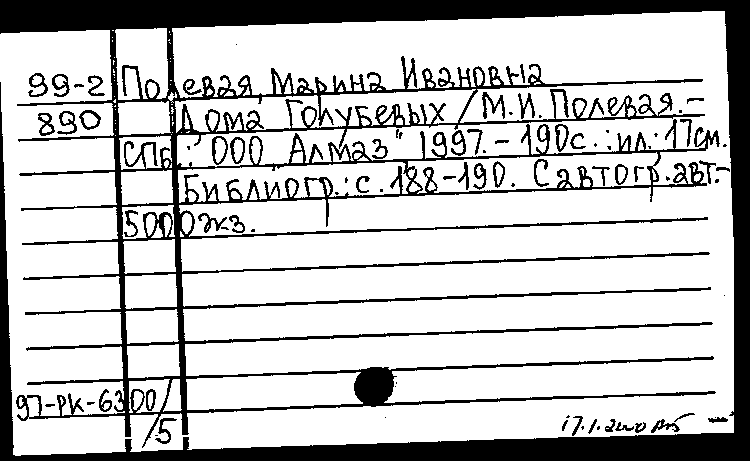 99-2 Полевая, Марина Ивановна
890 Дома Голубевых / М.И. Полевая. –
СПб.: ООО „Алмаз" 1997. – 190с.: ил.: 17см.
Библиогр.: с. 188–190. С автогр. авт. –
5000экз.
97-РК-6300/
5
17.1.2000